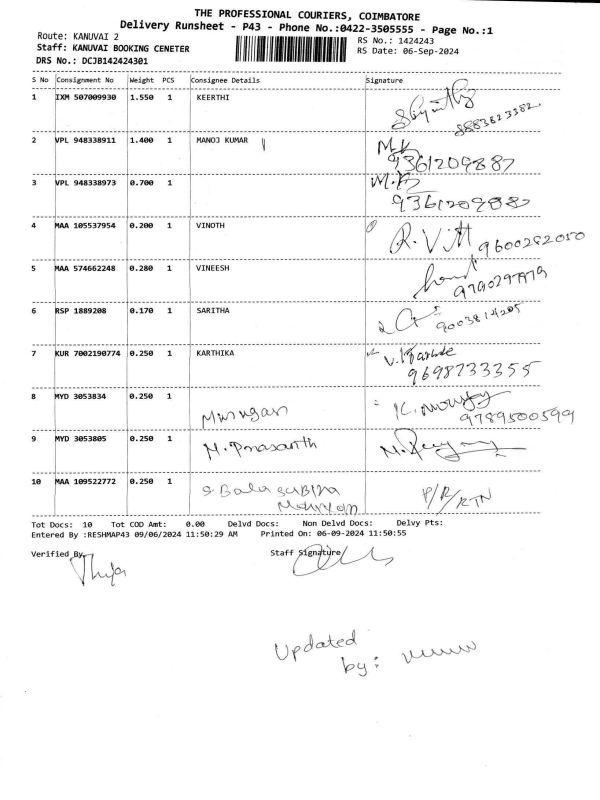 THE PROFESSIONAL COURIERS, COIMBATORE
Delivery Runsheet - P43 - Phone No.:0422-3505555 - Page No.:1
Route: KANUVAI 2
RS No.: 1424243
Staff: KANUVAI BOOKING CENETER
RS Date: 06-Sep-2024
DRS No.: DCJB142424301
S No Consignment No Weight PCS Consignee Details Signature
1 IXM 507009930 1.550 1 KEERTHI
8883623382
2 VPL 948338911 1.400 1 MANOJ KUMAR M.K
9361209887
3 VPL 948338973 0.700 1 M.K
9361209887
4 MAA 105537954 0.200 1 VINOTH R.Vitt 9600282050
5 MAA 574662248 0.280 1 VINEESH
9790297979
6 RSP 1889208 0.170 1 SARITHA 9003814205
7 KUR 7002190774 0.250 1 KARTHIKA
9698733355
8 MYD 3053834 0.250 1 Murugan
9789500599
9 MYD 3053805 0.250 1 M. Prasanth
10 MAA 109522772 0.250 1 S. Bala subra P/R/RTN
Maniyan
Tot Docs: 10 Tot COD Amt: 0.00 Delvd Docs: Non Delvd Docs: Delvy Pts:
Entered By :RESHMAP43 09/06/2024 11:50:29 AM Printed On: 06-09-2024 11:50:55
Verified By Staff Signature
Updated
by: